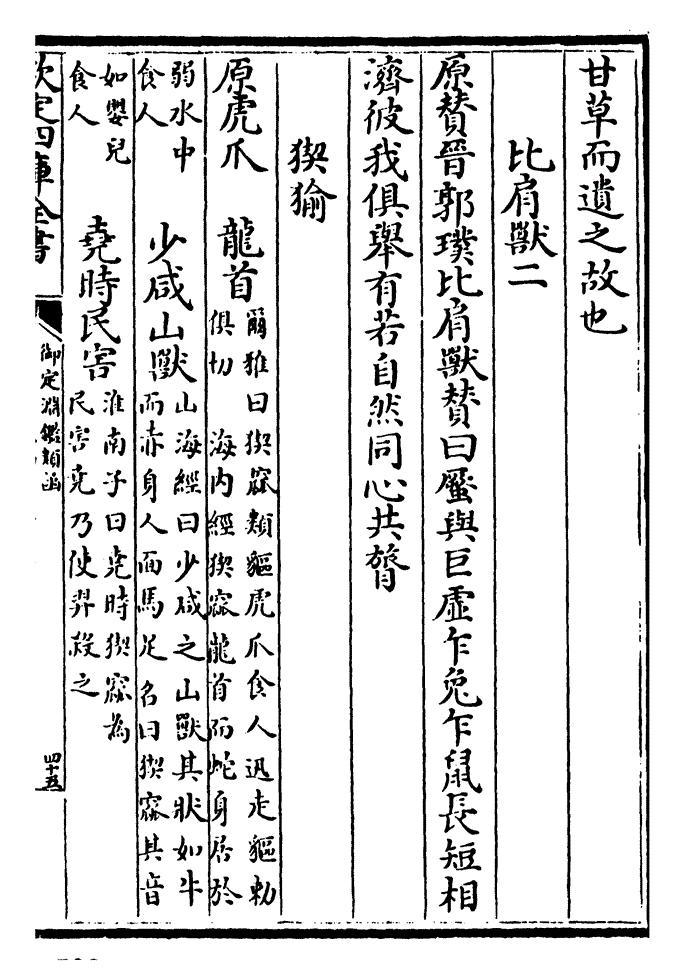 甘草而遺之故也
比肩獸二
原贊晉郭璞比肩獸贊曰蟨與巨虛乍兔乍鼠長短相
濟彼我俱舉有若自然同心共膂
猰㺄
原虎爪 龍首 爾雅曰猰窳類貙虎爪食人迅走貙勅
俱切 海内經猰窳龍首而蛇身居於
弱水中
食人 少咸山獸 山海經曰少咸之山獸其狀如牛
而赤身人面馬足名曰猰窳其音
如嬰兒
食人 堯時民害 淮南子曰堯時猰窳為
民害堯乃使羿殺之
欽定四庫全書 御定淵鑑類函 四十五